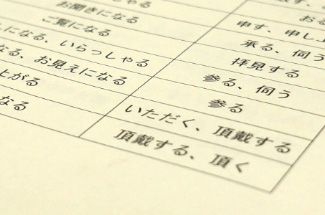 お
申す、申し
お聞きになる 承る、伺う
ご覧になる 拝見する
なる、いらっしゃる 参る、伺う
なる、お見えになる 参る
上がる いただく、頂戴する
なる 頂戴する、頂く